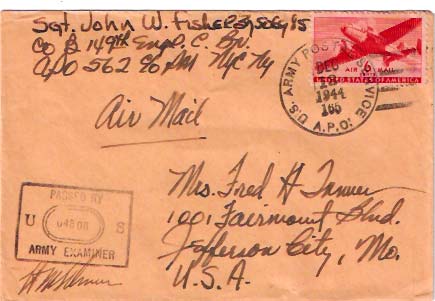 Sgt. John W. Fisher
Co B 149th Engr. C. Bn.
APO 562 % PM NYC NY
Air Mail
U.S. ARMY POSTAL SERVICE
DEC
1944
A.P.O.
AIR 6¢ MAIL
UNITED STATES OF AMERICA
PASSED BY
U S
ARMY EXAMINER
Mrs. Fred H Tanner
1001 Fairmount Blvd.
Jefferson City, Mo.
U.S.A.